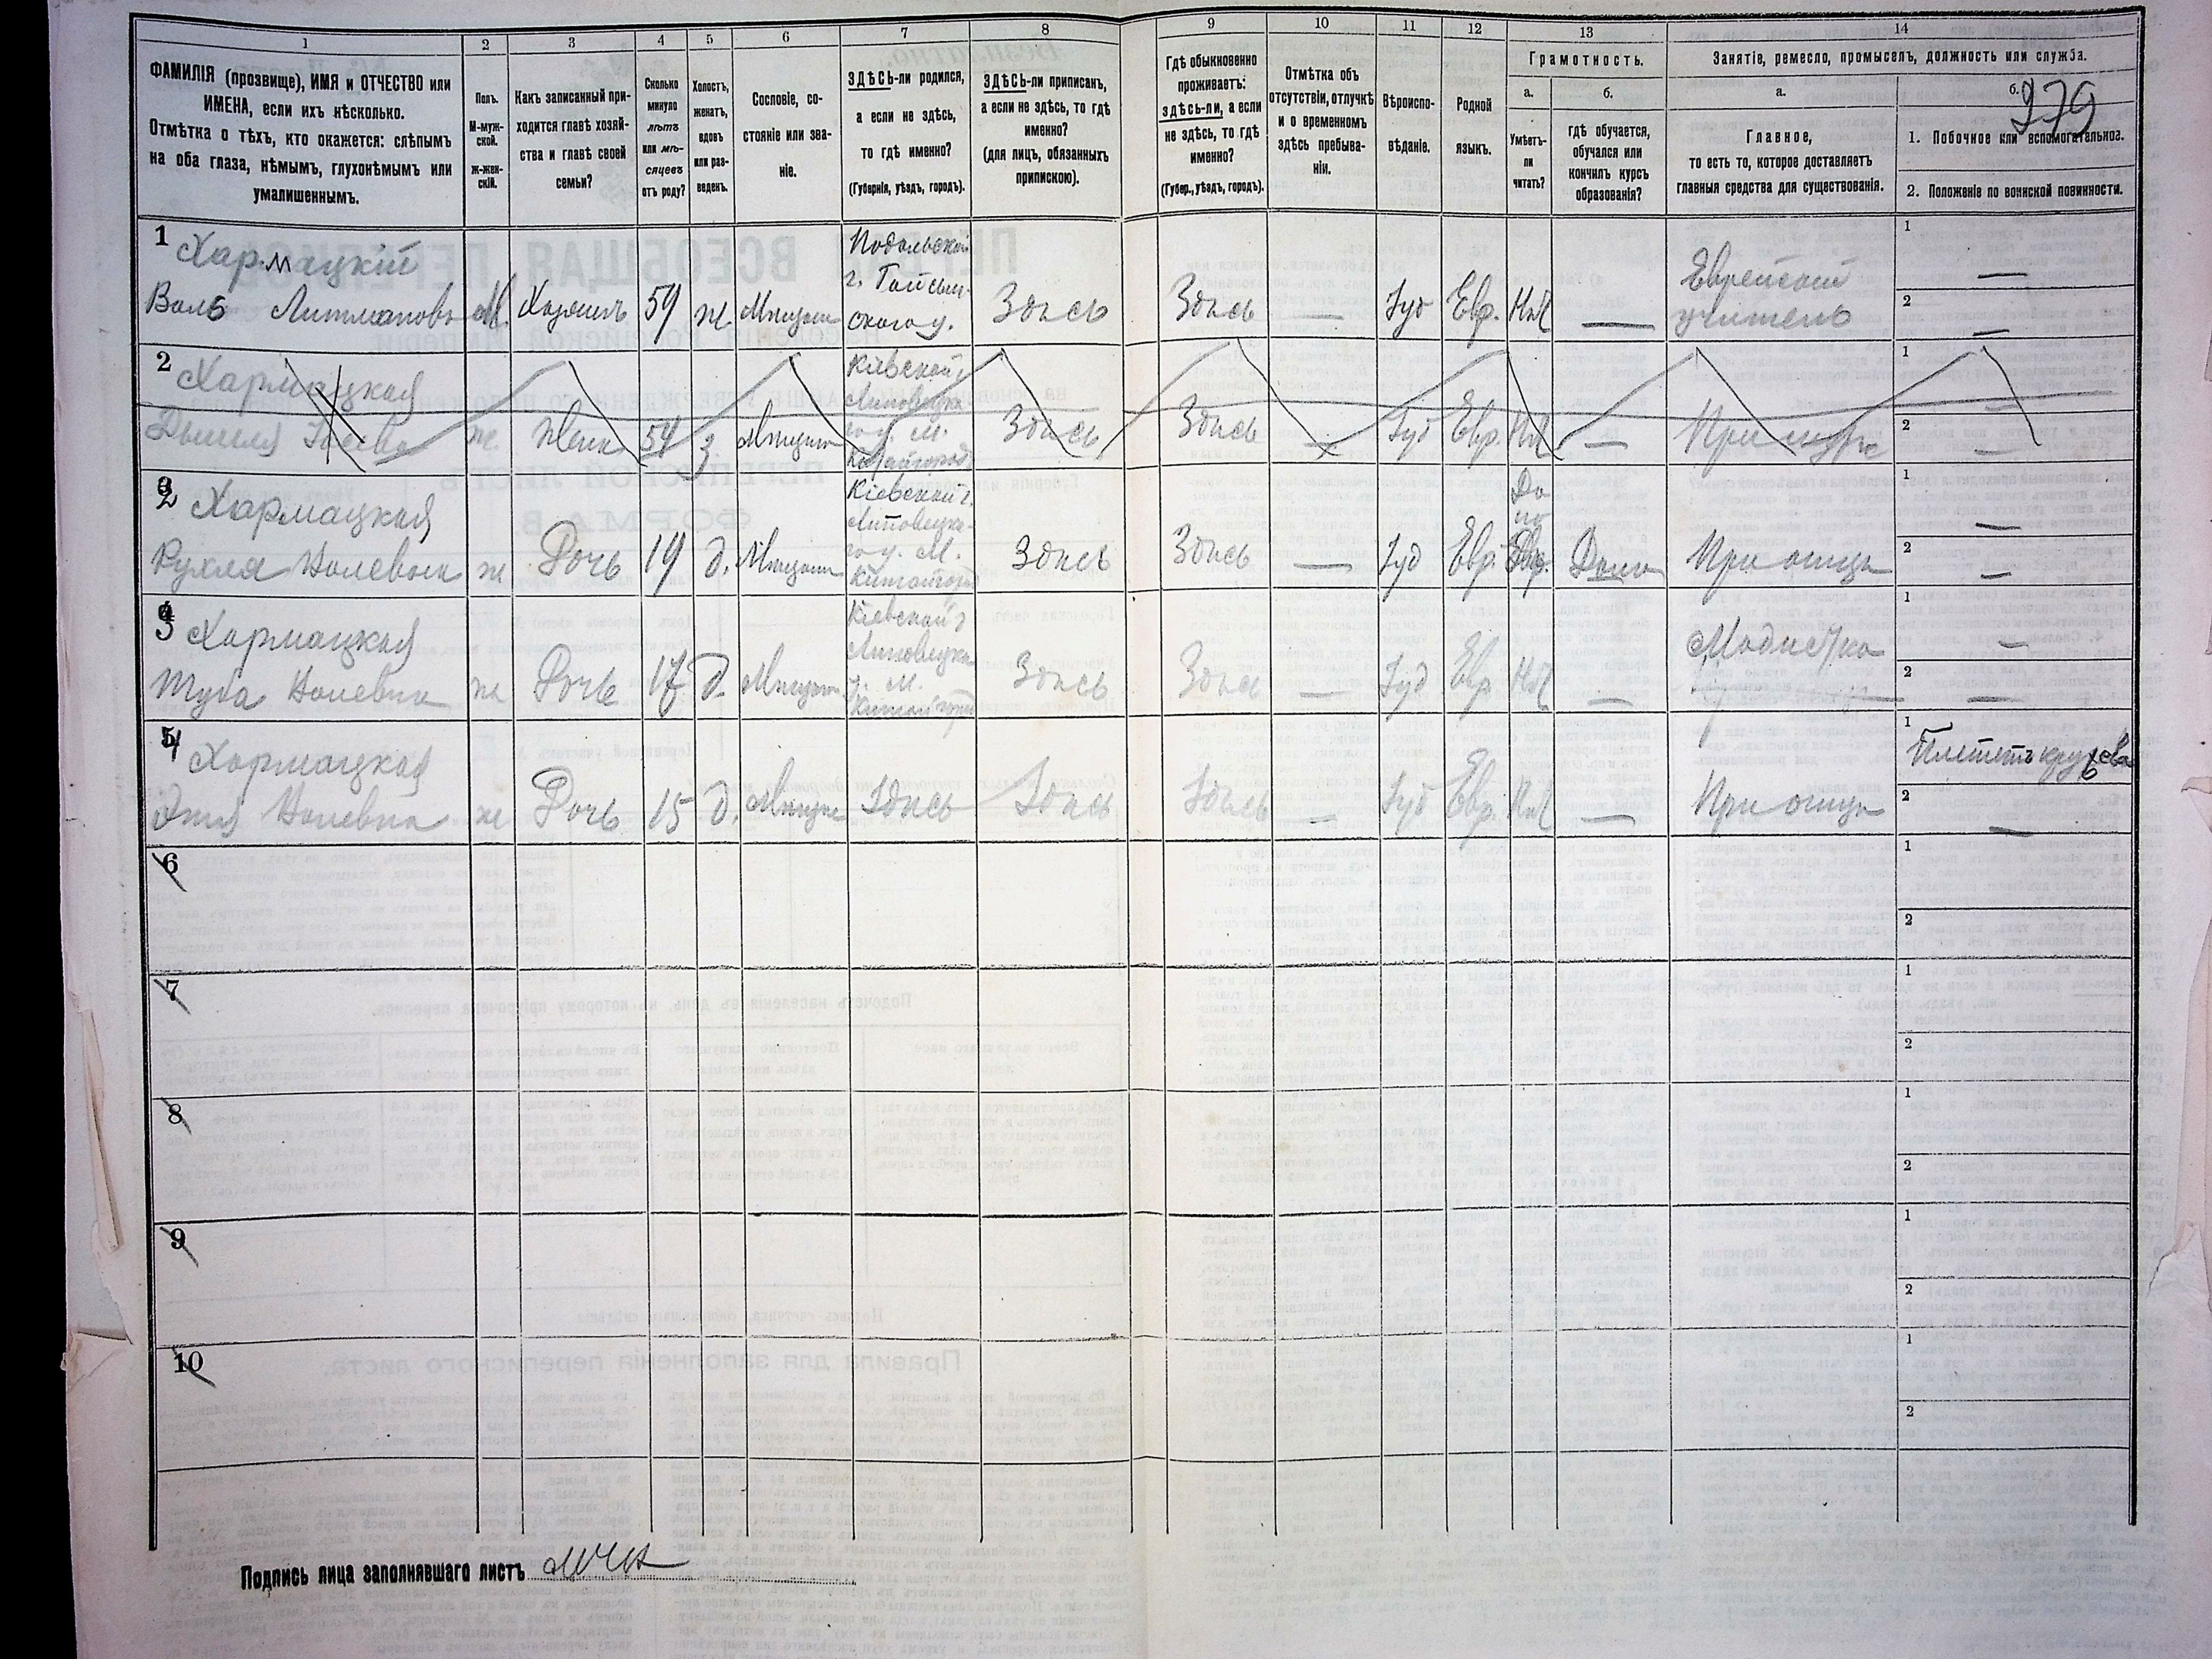 1
2
3
4
5
6
7
8
9
10
11
12
13
14
ФАМИЛІЯ (прозвище), ИМЯ и ОТЧЕСТВО или
ИМЕНА, если ихъ нѣсколько.
Отмѣтка о тѣхъ, кто окажется: слѣпымъ
на оба глаза, нѣмымъ, глухонѣмымъ или
умалишеннымъ.
Полъ.
М-муж-
ской.
Ж-жен-
скій.
Какъ записанный при-
ходится главѣ хозяй-
ства и главѣ своей
семьи?
Сколько
минуло
лѣтъ
или мѣ-
сяцевъ
отъ роду?
Холостъ,
женатъ,
вдовъ
или раз-
веденъ.
Сословіе, со-
стояніе или зва-
ніе.
ЗДѢСЬ-ли родился,
а если не здѣсь,
то гдѣ именно?
(Губернія, уѣздъ, городъ).
ЗДѢСЬ-ли приписанъ,
а если не здѣсь, то гдѣ
именно?
(для лицъ, обязанныхъ
припискою).
Гдѣ обыкновенно
проживаетъ:
здѣсь-ли, а если
не здѣсь, то гдѣ
именно?
(Губер., уѣздъ, городъ).
Отмѣтка объ
отсутствіи, отлучкѣ
и о временномъ
здѣсь пребыва-
ніи.
Вѣроиспо-
вѣданіе.
Родной
языкъ.
Грамотность.
а.
Умѣетъ-
ли
читать?
б.
гдѣ обучается,
обучался или
кончилъ курсъ
образованія?
Занятіе, ремесло, промыселъ, должность или служба.
а.
Главное,
то есть то, которое доставляетъ
главныя средства для существованія.
б.
979
1. Побочное или вспомогательное.
2. Положеніе по воинской повинности.
1 Хармацкій
Воль Литмановъ М. Хозяинъ 59 ж Мѣщан
Подольской
г. Гайсин-
скаго у.
Здѣсь Здѣсь — Іуд Евр. НѣТ —
Еврейскій
учитель
1 —
2 —
2 Хармацкая
ж. Жена 54 з Мѣщан
Кіевской г
Липовецка
го у. м.
Китайгород
Здѣсь Здѣсь — Іуд Евр. НѣТ — При мужѣ
1 —
2 —
2 Хармацкая
Рухля Волевна ж Дочь 19 д. Мѣщан
Кіевской г.
Липовецка-
го у. М.
Китайгород
Здѣсь Здѣсь — Іуд Евр.
Да
по
Евр. Дома При отцѣ
1 —
2 —
3 Хармацкая
Туба Волевна ж Дочь 17 д. Мѣщан
Кіевской г
Липовецка
у. М.
Китайгород
Здѣсь Здѣсь — Іуд Евр. НѣТ —
Модистка
1 —
2 —
4 Хармацкая
Волевна ж Дочь 15 д. Мѣщан Здѣсь Здѣсь Здѣсь — Іуд Евр. НѣТ — При отцѣ
1 Плететъ кружева
2 —
6
1
2
7
1
2
8
1
2
9
1
2
10
1
2
Подпись лица заполнявшаго листъ